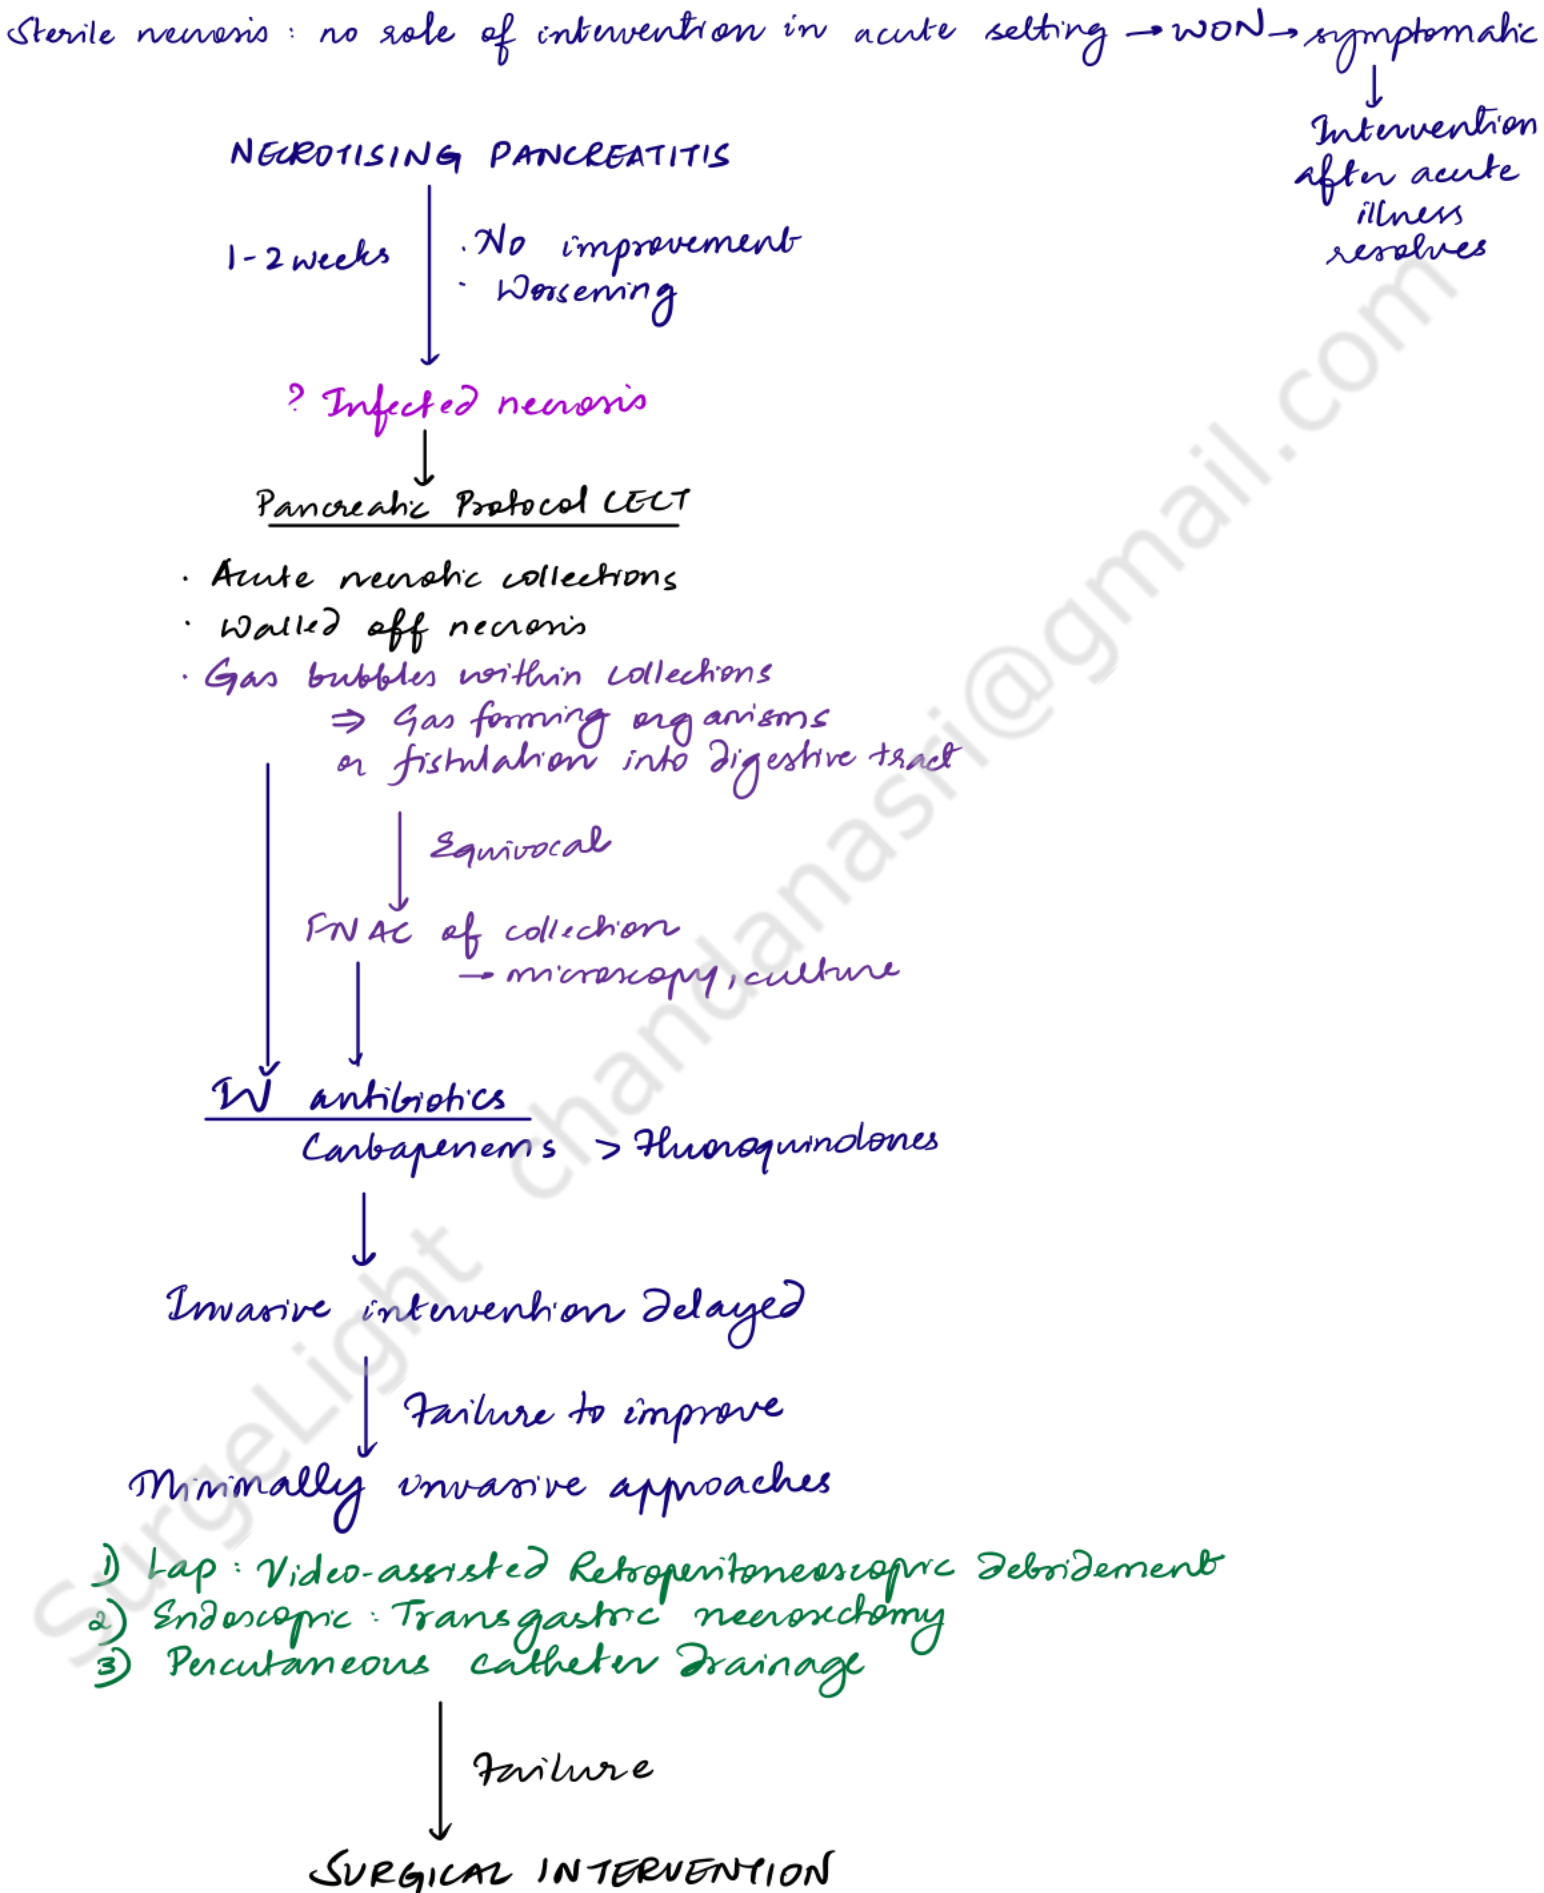 Sterile necrosis : no role of intervention in acute setting → WON → symptomatic
↓
Intervention
after acute
illness
resolves
NECROTISING PANCREATITIS
1-2 weeks
. No improvement
. Worsening
? Infected necrosis
↓
Pancreatic Protocol CECT
. Acute necrotic collections
. Walled off necrosis
. Gas bubbles within collections
⇒ Gas forming organisms
or fistulation into digestive tract
↓ Equivocal
FNAC of collection
→ microscopy, culture
↓
IV antibiotics
Carbapenems > Fluoroquinolones
↓
Invasive intervention delayed
↓ Failure to improve
Minimally invasive approaches
1) Lap : Video-assisted Retroperitoneoscopic Debridement
2) Endoscopic : Transgastric necrosectomy
3) Percutaneous catheter drainage
↓ Failure
SURGICAL INTERVENTION
SurgeLight chandanasri@gmail.com